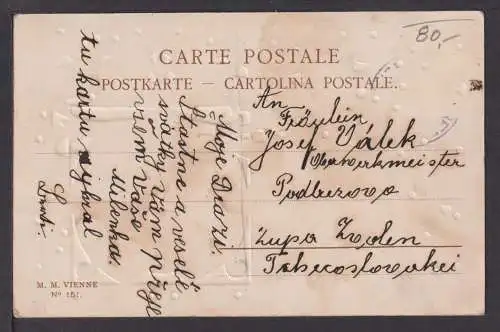 80,-
CARTE POSTALE
POSTKARTE – CARTOLINA POSTALE.
An
Fräulein
Josef Válek
Oberwerkmeister
Podbrezova
Zupa Zvolen
Tschecoslovakei
Moje Drazí.
Štastne a veselé
svátky vám přeje
všem Vaše
Milenka.
tu kartu vybral
M. M. VIENNE
Nº 151.